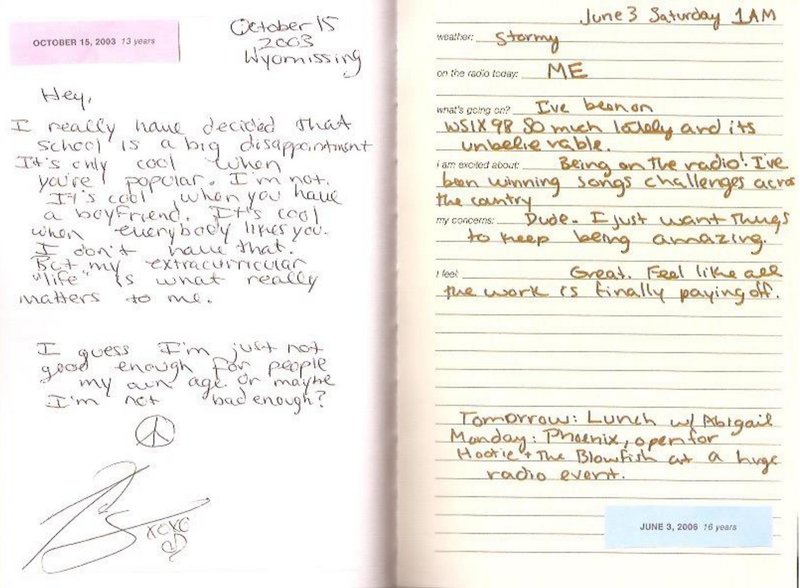 OCTOBER 15, 2003 13 years
October 15
2003
Wyomissing
Hey,
I really have decided that
school is a big disappointment
It's only cool when
you're popular. I'm not.
It's cool when you have
a boyfriend. It's cool
when everybody likes you.
I don't have that.
But my extracurricular
"life" is what really
matters to me.
I guess I'm just not
good enough for people
my own age. Or maybe
I'm not bad enough?
XOXO
June 3 Saturday 1AM
weather: Stormy
on the radio today: ME
what's going on? I've been on
WSIX 98 so much lately and its
unbelievable.
i am excited about: Being on the radio! I've
been winning songs challenges across
the country
my concerns: Dude. I just want things
to keep being amazing.
i feel: Great. Feel like all
the work is finally paying off.
Tomorrow: Lunch w/ Abigail
Monday: Phoenix, open for
Hootie + The Blowfish at a huge
radio event.
JUNE 3, 2006 16 years